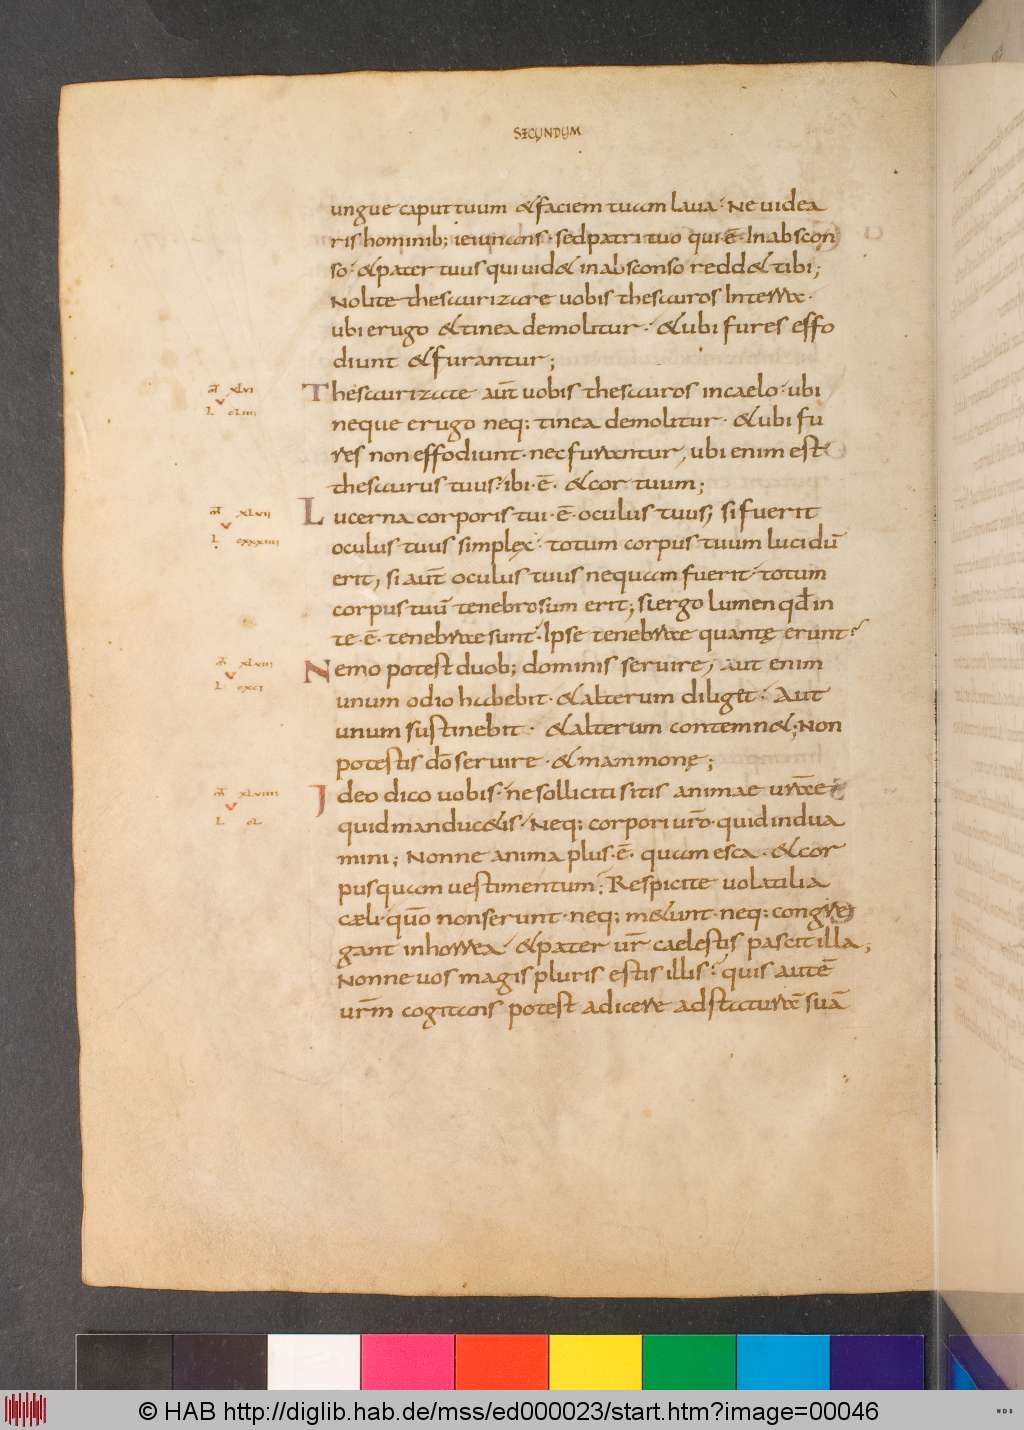 SECUNDUM
ungue caput tuum & faciem tuam laua· Ne uidea
ris hominib; ieiunans· sed patri tuo qui ē· In abscon
so· & pater tuus qui uid& in absconso redd& tibi;
Nolite thesaurizare uobis thesauros In terra·
ubi erugo & tinea demolitur· & ubi fures effo
diunt & furantur;
aт̄ xlvi
l cliii
Thesaurizate aut̄ uobis thesauros in caelo· ubi
neque erugo neq; tinea demolitur· & ubi fu
res non effodiunt· nec furantur, ubi enim est
thesaurus tuus· ibi· ē· & cor tuum;
xlvii
l cxxxiii
Lucerna corporis tui· ē· oculus tuus, si fuerit
oculus tuus simplex· totum corpus tuum lucidū
erit, si aut̄ oculus tuus nequam fuerit· totum
corpus tuū tenebrosum erit; si ergo lumen qd̄ in
te· ē· tenebrae sunt· Ipse tenebrae quantę erunt?
xlviii
l cxci
Nemo potest duob; dominis seruire, aut enim
unum odio habebit· & alterum diliget· Aut
unum sustinebit· & alterum contemn&; Non
potestis dō seruire· & mammonę;
xlviiii
l cl
Ideo dico uobis· ne solliciti sitis animae urāe
quid manduc&is· Neq; corpori urō· quid indua
mini; Nonne anima plus· ē· quam esca· & cor
pus quam uestimentum; Respicite uolatilia
cæli· quō non serunt· neq; m&unt· neq; congre
gant in horrea· & pater ur̄ caelestis pascit illa;
Nonne uos magis pluris estis illis· quis autē
urm̄ cogitans potest adicere ad staturā suā
© HAB http://diglib.hab.de/mss/ed000023/start.htm?image=00046